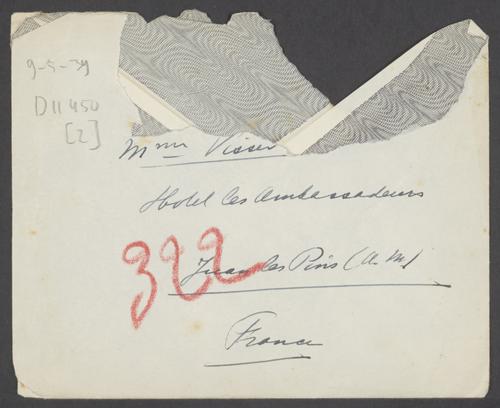 9-5-39
D11450
[2]
Mme Visser
Hotel les Ambassadeurs
322
Juan les Pins (A.M)
France